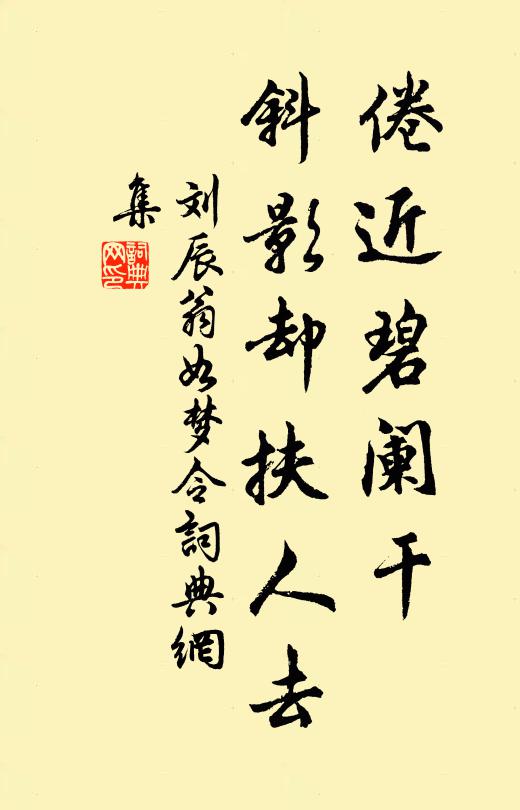 倦近碧阑干
斜影却扶人去
刘辰翁如梦令詞典網
集
詞典
网印